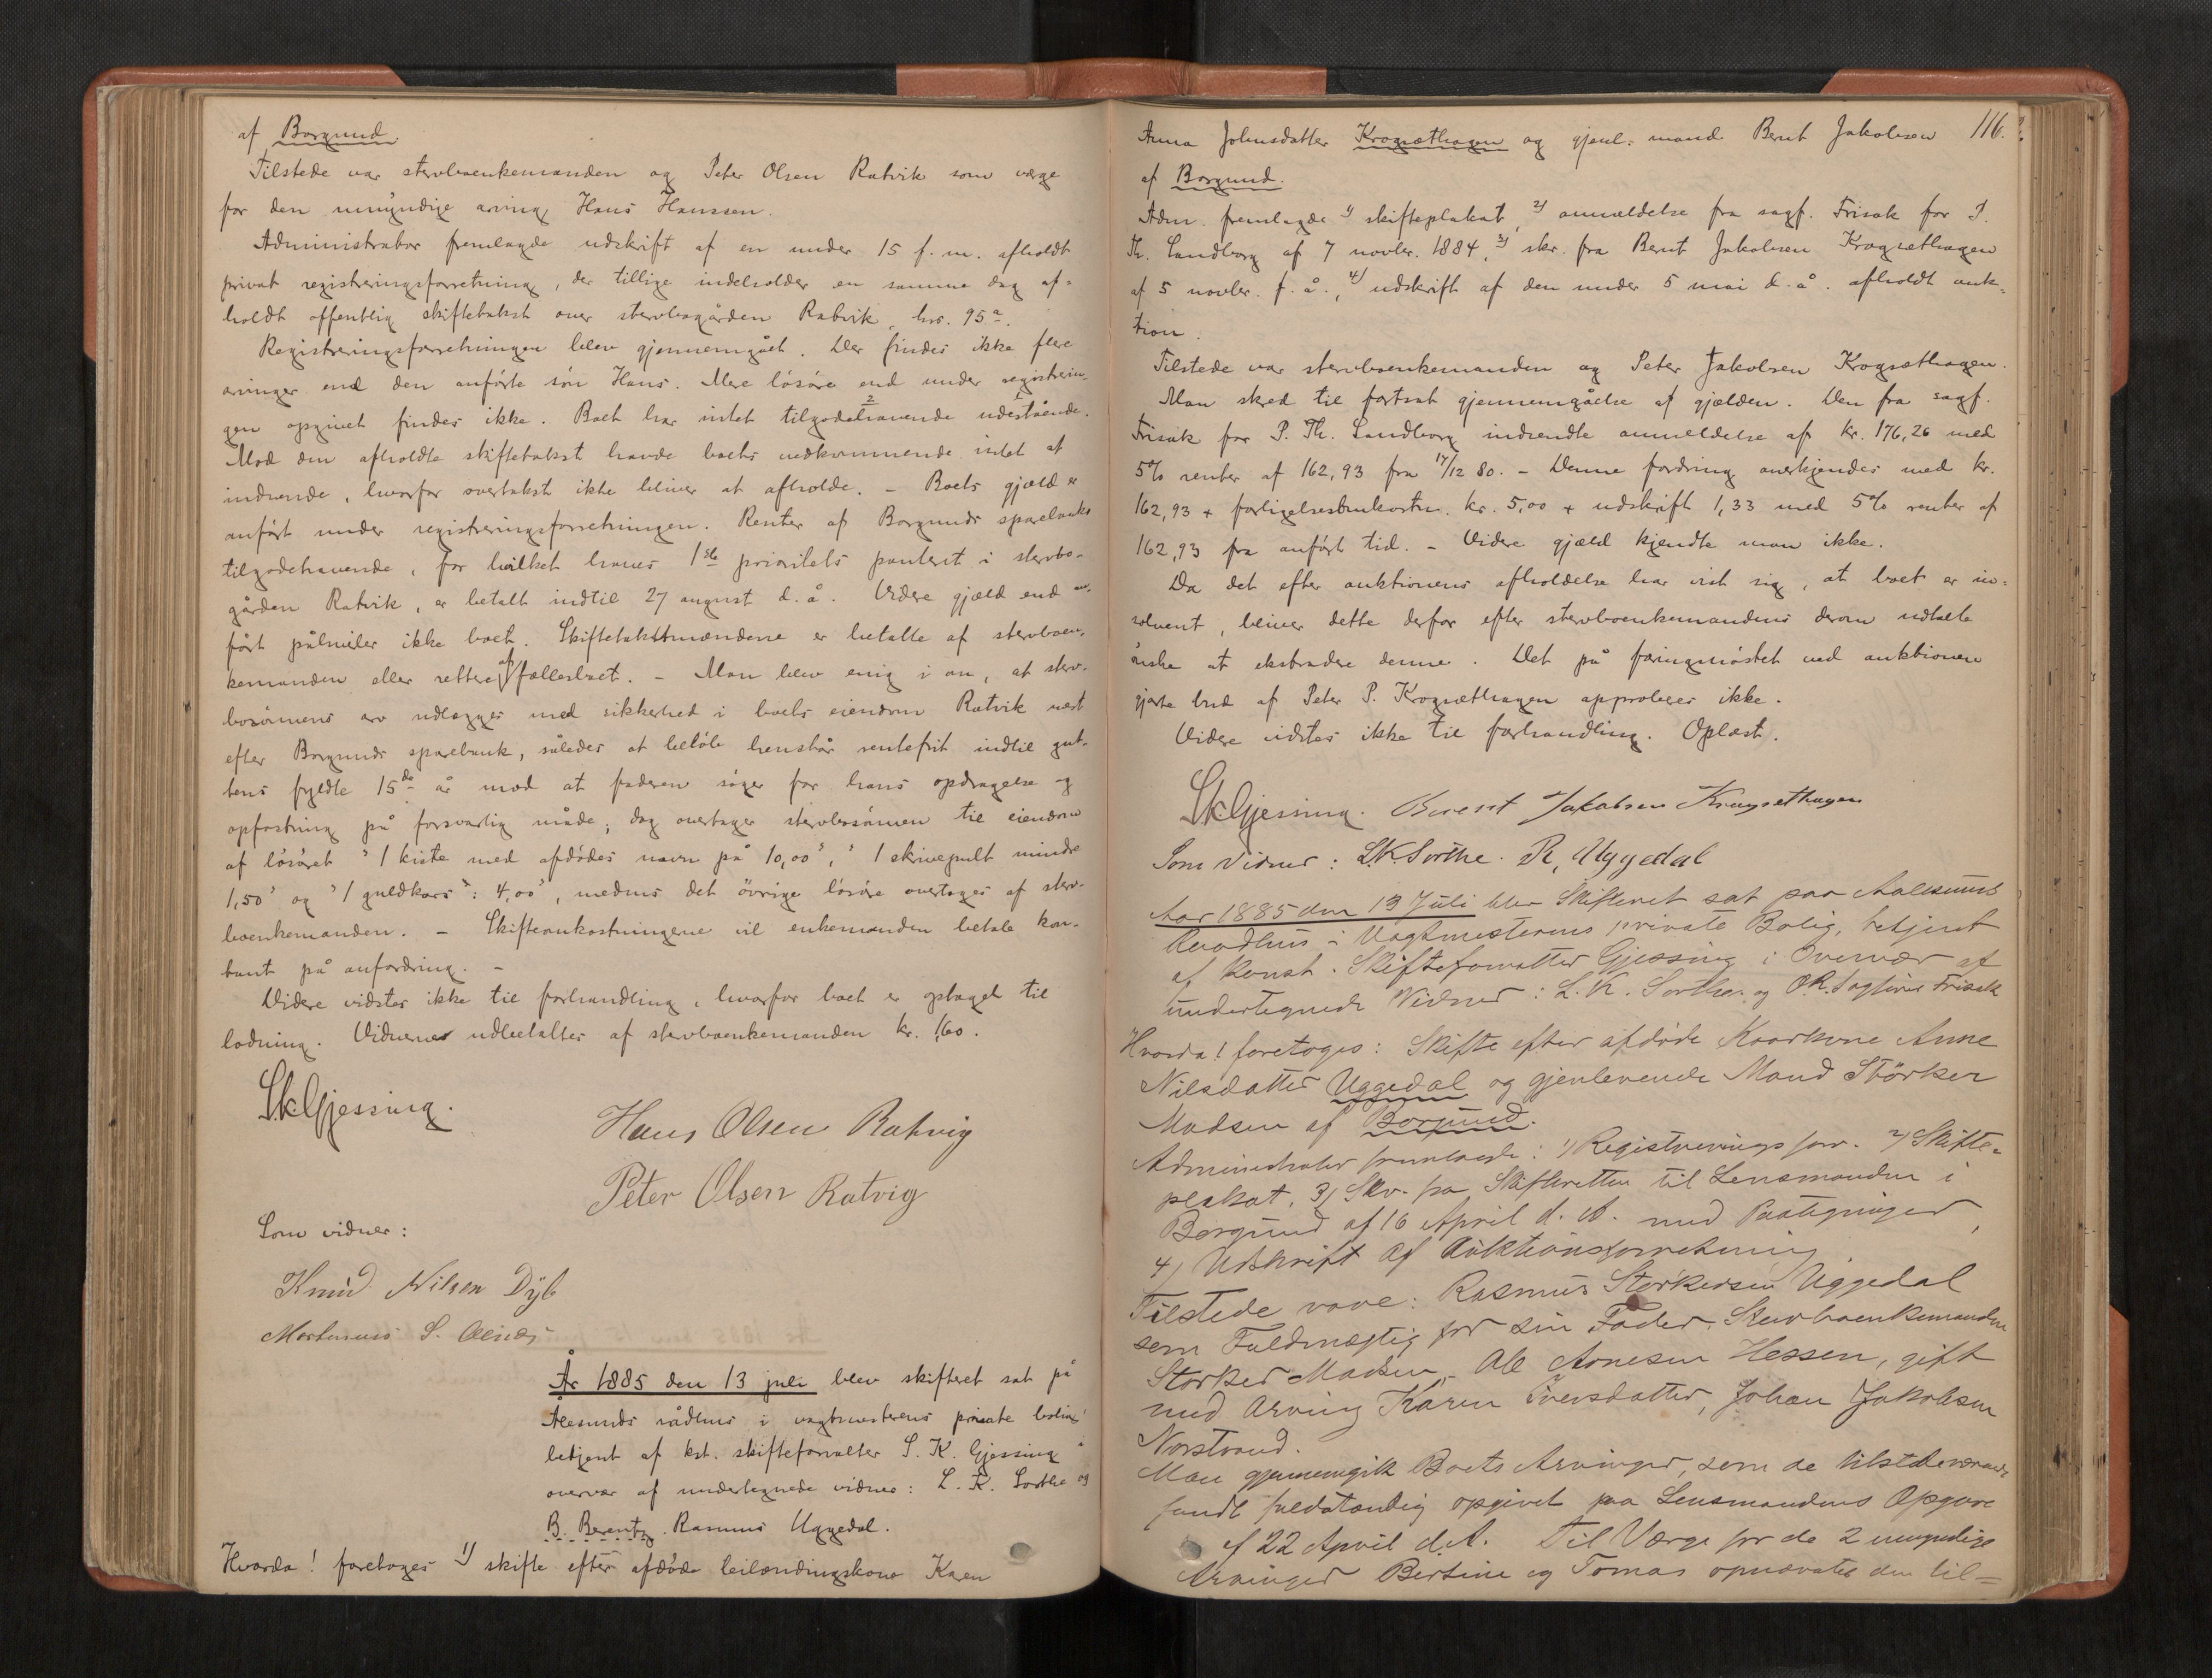 af Borgund.
Tilstede var stervboenkemanden og Peter Olsen Ratvik som værge
for den umyndige arving Hans Hanssen.
Administrator fremlagde udskrift af en under 15 f. m. afholdt
privat registreringsforretning, der tillige indeholder en samme dag af-
holdt offentlig skiftetakst over stervbogården Ratvik, bno. 95a.
Registreringsforretningen blev gjennemgået. Der findes ikke flere
arvinger end den anførte søn Hans. Mere løsøre end under registrerin-
gen opgivet findes ikke. Boet har intet tilgodehavende udestående.
Mod den afholdte skiftetakst havde boets vedkommende intet at
indvende, hvorfor overtakst ikke bliver at afholde. – Boets gjæld er
anført under registreringsforretningen. Renter af Borgunds sparebanks
tilgodehavende, for hvilket haves 1ste prioritets panteret i stervbo-
gården Ratvik, er betalt indtil 27 august d. å. Videre gjæld end an-
ført påhviler ikke boet. Skiftetakstmændene er betalte af stervboen-
kemanden eller rettere af fællesboet. – Man blev enig i om, at sterv-
bosønnens arv udlægges med sikkerhed i boets eiendom Ratvik næst
efter Borgunds sparebank, således at beløb henstår rentefrit indtil gut-
tens fyldte 15de år mod at faderen søger for hans opdragelse og
opfostring på forsvarlig måde; dog overtager stervbosønnen til eiendom
af løsøret "1 kiste med afdødes navn på 10,00", "1 skrivepult mindre
1,50" og "1 guldkors": 4,00, medens det øvrige løsøre overtages af sterv-
boenkemanden. – Skifteomkostningerne vil enkemanden betale kon-
tant på anfordring. –
Videre vidstes ikke til forhandling, hvorfor boet er optaget til
lodning. Vidnerne udbetaltes af stervboenkemanden kr. 1,60.
SKGjessing.
Hans Olsen Ratvig
Peter Olsen Ratvig
Som vidner:
Knud Nilsen Dyb
Martinus S.
År 1885 den 13 juli blev skifteret sat på
Ålesunds rådhus i vagtmesterens private bolig
betjent af kst. skifteforvalter S. K. Gjessing i
overvær af undertegnede vidner: L. K. Sorthe og
B. Berentz. Rasmus Uggedal.
Hvorda! foretoges 1) skifte efter afdøde leilændingskone Karen
116.
Anna Johnsdatter Krogsæthagen og gjenl. mand Bernt Jakobsen
af Borgund.
Adm. fremlagde 1) skifteplakat, 2) anmeldelse fra sagf. Frisak for P.
Th. Sandborg af 7 novbr. 1884, 3) skr. fra Bernt Jakobsen Krogsæthagen
af 5 novbr. f. å., 4) udskrift af den under 5 mai d. å. afholdt auk-
tion.
Tilstede var stervboenkemanden og Peter Jakobsen Krogsæthagen.
Man skred til fortsat gjennemgåelse af gjælden. Den fra sagf.
Frisak for P. Th. Sandborg indsendte anmeldelse af kr. 176,26 med
5% renter af 162,93 fra 17/12 80. – Denne fordring anerkjendes med kr.
162,93 + forligelsesomkostn. kr. 5,00 + udskrift 1,33 med 5% renter af
162,93 fra anført tid. – Videre gjæld kjendte man ikke.
Da det efter auktionens afholdelse har vist sig, at boet er in-
solvent, bliver dette derfor efter stervboenkemandens derom udtalte
ønske at ekstradere denne. Det på auktionen
gjorte bud af Peter P. Krogsæthagen approberes ikke.
Videre vidstes ikke til forhandling. Oplæst.
SKGjessing. Berent Jakobsen Krogsethagen
Som vidner: L.K. Sorthe. R. Uggedal
Aar 1885 den 13 Juli blev Skifteret sat paa Aalesunds
Raadhus i Vagtmesterens private Bolig, betjent
af konst. Skifteforvalter Gjessing i Overvær af
undertegnede Vidner: L. K. Sorthe og O.R.Sagfører Frisak
Hvorda! foretoges: Skifte efter afdøde Kaarkone Anne
Nilsdatter Uggedal og gjenlevende Mand Størker
Madsen af Borgund.
Administrator fremlagde: 1) Registreringsforr. 2) Skifte-
plakat, 3) Skr. fra Skifteretten til Lensmanden i
Borgund af 16 April d. A. med Paategninger,
4) Udskrift af Auktionsforretning.
Tilstede vare: Rasmus Størkersen Uggedal
som Fuldmægtig for sin Fader, Stervboenkemanden
Størker Madsen, Ole Arnesen Hessen, gift
med Arving Karen Iversdatter, Johan Jakobsen
Norstrand.
Man gjennemgik Boets Arvinger, som de tilstedeværende
fandt fuldstændig opgivet paa Lensmandens Opgave
af 22 April d.A. Til Værge for de 2 umyndige
Arvinger Bertine og Tomas opnævntes den til-